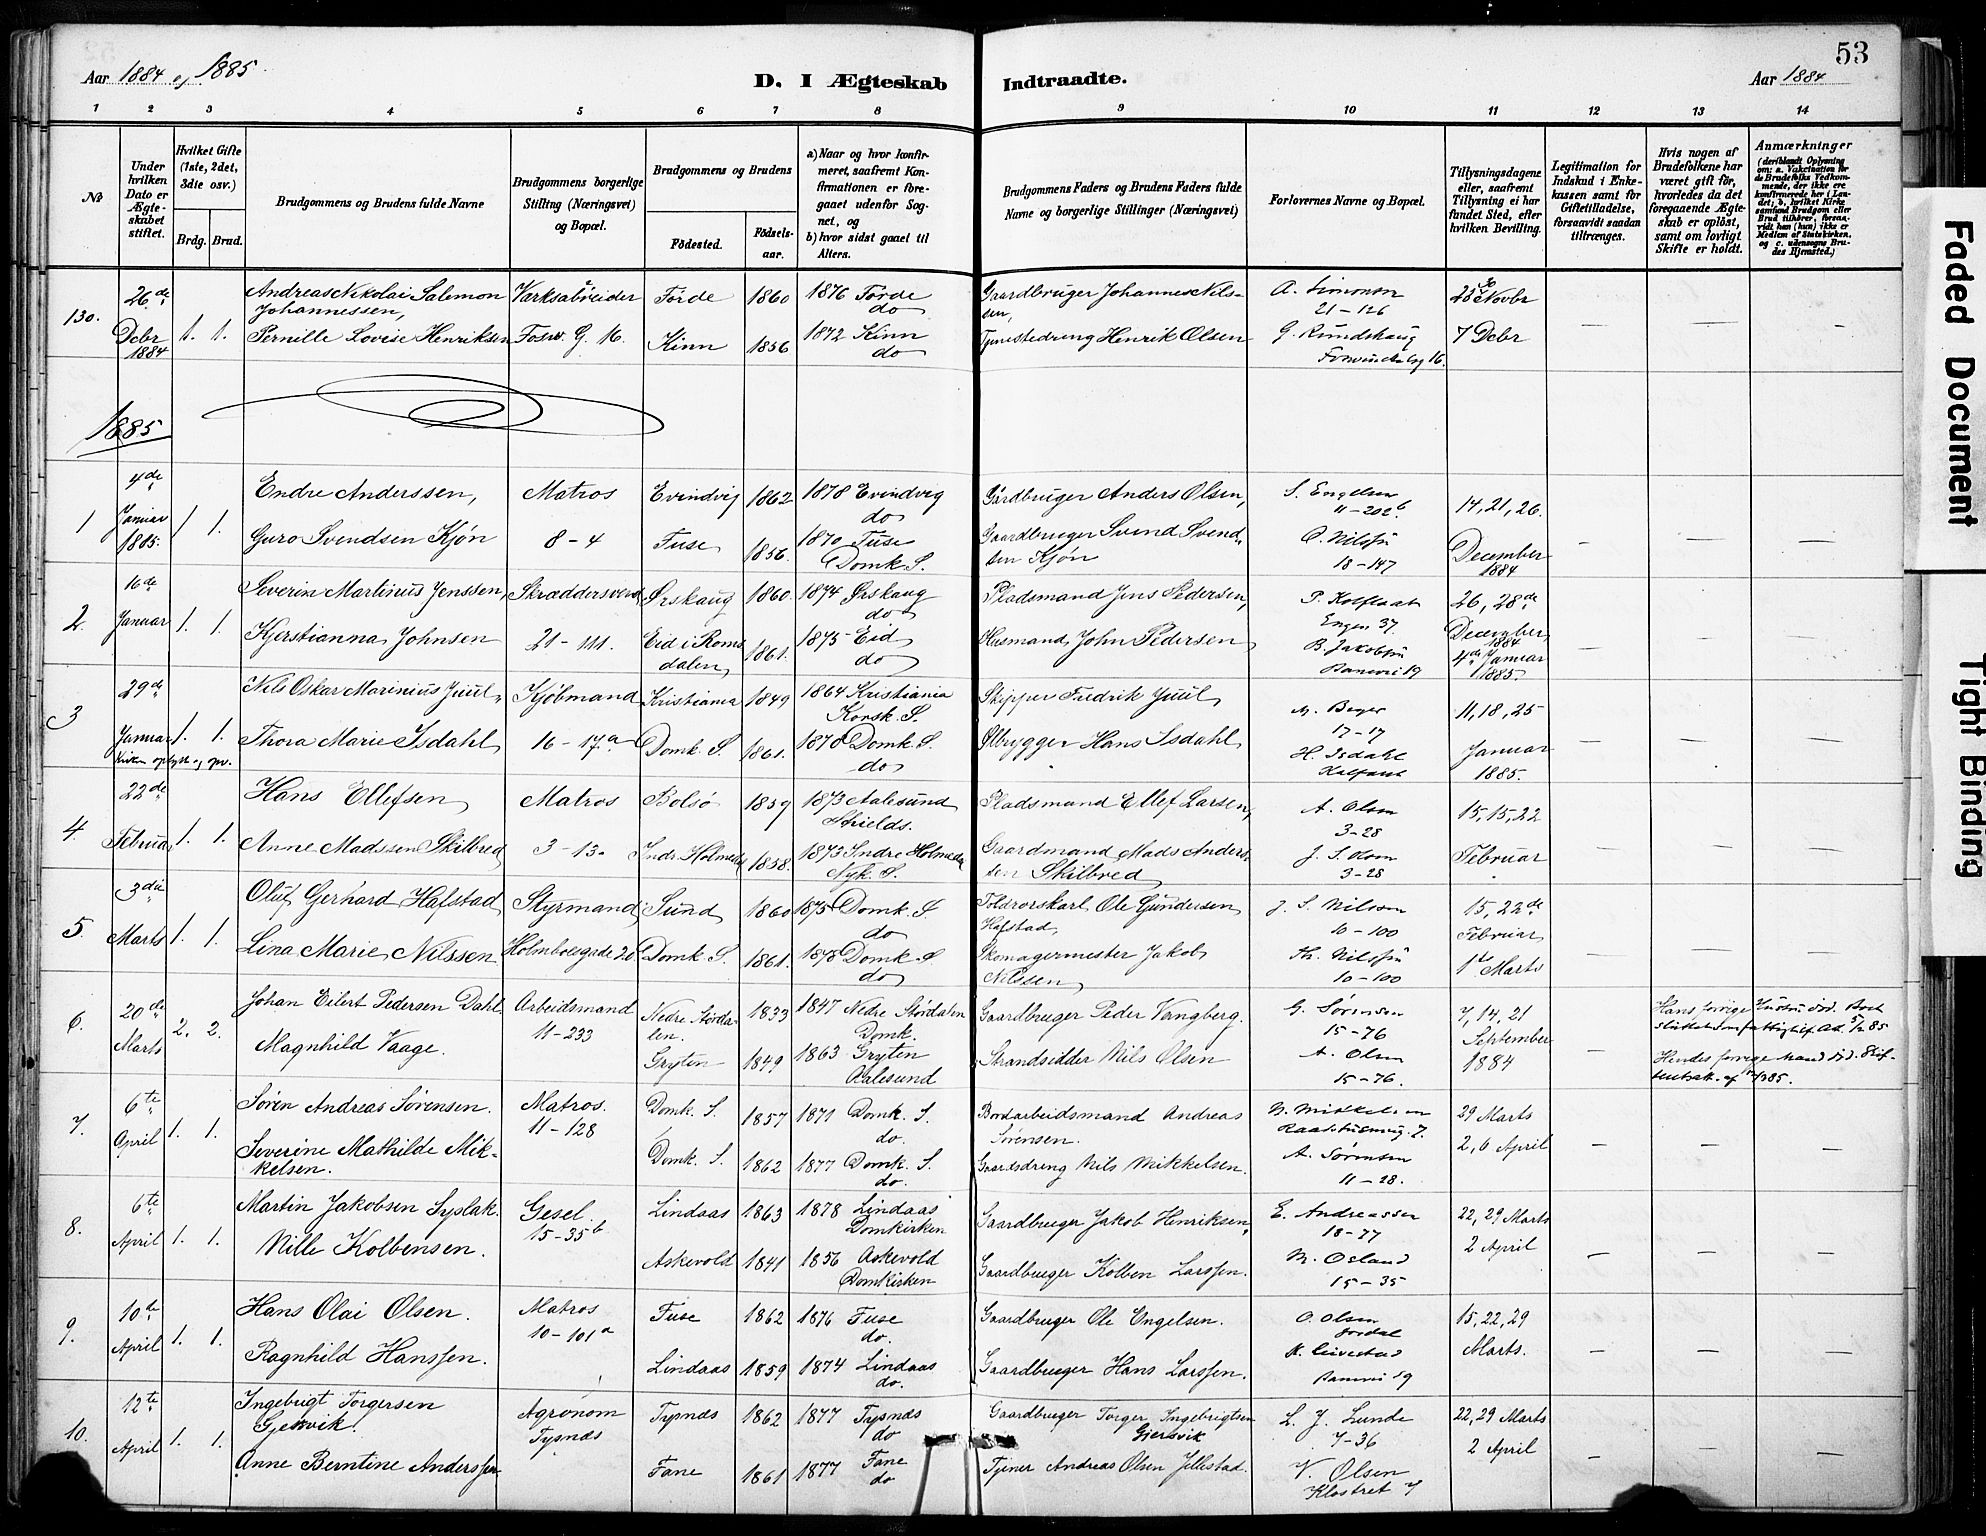 53
Aar 1884 og 1885
D. I Ægteskab Indtraadte.
Aar 1884
1 2 3 4 5 6 7 8 9 10 11 12 13 14
No
Under hvilken Dato er Ægteskabet stiftet.
Hvilket Gifte (1ste, 2det, 3die osv.)
Brdg. Brud.
Brudgommens og Brudens fulde Navne
Brudgommens borgerlige Stilling (Næringsvei) og Bopæl.
Brudgommens og Brudens
Födested.
Födselsaar.
a) Naar og hvor konfirmeret, saafremt Konfirmationen er foregaaet udenfor Sognet, og
b) hvor sidst gaaet til Alters.
Brudgommens Faders og Brudens Faders fulde Navne og borgerlige Stillinger (Næringsvei)
Forlovernes Navne og Bopæl.
Tillysningsdagene eller, saafremt Tillysning ei har fundet Sted, efter hvilken Bevilling.
Legitimation for Indskud i Enkekassen samt for Giftetilladelse, forsaavidt saadan tiltrænges.
Hvis nogen af Brudefolkene har været gift för, hvorledes da det foregaaende Ægteskab er oplöst, samt om lovligt Skifte er holdt.
Anmærkninger (deriblandt Oplysning om: a. Vaccination for de Brudefolks Vedkommende, der ikke ere konfirmerede her i Landet; b. hvilket Kirkesamfund Brudgom eller Brud tilhörer, forsaavidt han (hun) ikke er Medlem af Statskirken, og c. udensogns Brudes Hjemsted.)
130. 26de Debr 1884 1. 1.
Andreas Nikolai Salemon Johannessen, Værksabreider Förde 1860 1876 Förde do
Gaardbruger Johannes Nilssen, A. Simonsen 21-126
Pernille Lovise Henriksen Kinn 1856 1872 Kinn do
Tjenestedreng Henrik Olsen 7 Debr
1885
1 4de Januar 1885. 1 1.
Endre Anderssen, Matros Evindvig 1862 1878 Evindvig do
Gårdbruger Anders Olsen, S. Engelsen 11-202b 14, 21, 26.
Guro Svendsen Kjön 8-4 Fuse 1856. 1870 Fuse Domk. S.
Gaardbruger Svend Svendsen Kjön 18-147 December 1884
2. 16de Januar 1. 1.
Severin Martinus Jenssen, Skræddersvend Ørskaug 1860. 1874 Ørskaug do
Pladsmand Jens Pedersen, Engen 37 26, 28de December 1884
Kjerstianna Johnsen 21-111. Eid i Romsdalen 1861. 1875 Eid do
Husmand John Pedersen 4de Januar 1885
3 29de Januar 1. 1.
Nils Oskar Marinius Juul, Kjöbmand Kristiania 1849 1864 Kristiania Korsk. S.
Skipper Fredrik Juul M. Beyer 17-17 11, 18, 25
Thora Marie Isdahl 16-17a Domk. S. 1861. 1878 Domk. S. do
Ølbrygger Hans Isdahl H. Isdahl Januar 1885.
4. 22de Februar 1. 1.
Hans Ellefsen Matros Bolsö 1859 1873 Aalesund Shields.
Pladsmand Ellef Larsen, A. Olsen 3-28 15, 15, 22
Anne Madssen Skilbred 3-13. Indr. Holmedal 1858. 1873 Indre Holmedal Nyk. S.
Gaardmand Mads Anderssen Skilbred 3-28 Februar
5. 3die Marts 1. 1.
Oluf Gerhard Hafstad Styrmand Sund 1860 1875 Domk. S. do
Toldrorskarl Ole Gundersen Hafstad J. S. Nilsen 10-100 15, 22de Februar
Lina Marie Nilssen Holmboegade 20 Domk S. 1861. 1878 Domk. S. do
Skomagermester Jakob Nilssen 10-100 1te Marts
6. 20de Marts 2. 2.
Johan Eilert Pedersen Dahl Arbeidsmand 11-233 Nedre Størdalen. 1833 1847 Nedre Størdalen Domk.
Gaardbruger Peder Vangberg. G. Sørensen 15-76 7, 14, 21 September
Magnhild Vaage. Gryten 1849 1863 Gryten Aalesund
Strandsidder Nils Olsen A. Olsen 15-76. 1884
7. 6te April 1. 1.
Søren Andreas Sørensen. Matros. 11-128 Domk. S. 1857 1871 Domk. S. do.
Bordarbeidsmand Andreas Sørensen. 29 Marts
Severine Mathilde Mikkelsen. Domk. S. 1862 1877 Domk. S. do.
Gaardsdreng Nils Mikkelsen. A. Sørensen 11-28. 2, 6 April
8. 6te April 1. 1.
Martin Jakobsen Syslak. Gesel. 15-35b Lindaas 1863 1878 Lindaas Domkirken
Gaardbruger Jakob Henriksen, E. Andreassen 18-77 22, 29 Marts
Nille Kolbensen. Askevold 1841 1856 Askevold Domkirken
Gaardbruger Kolben Larssen. 15-35 2 April
9. 10de April 1. 1.
Hans Olai Olsen. Matros 10-101a Fuse 1862 1876 Fuse do.
Gaardbruger Ole Engelsen. O. Olsen 15, 22, 29
Ragnhild Hanssen. Lindaas 1859 1874 Lindaas do.
Gaardbruger Hans Larssen. Marts.
10. 12te April 1. 1.
Ingebrigt Torgersen Gjersvik. Agronom Tysnæs Tysnæs 1862 1877 Tysnæs do
Gaardbruger Torger Ingebrigtsen Gjersvik L. J. Lunde 7-36 22, 29 Marts
Anne Berntine Anderssen. Fane 1861 1877 Fane do
Tjener Andreas Olsen Jellestad. V. Olsen Klostret 7 2 April
Faded Document
Tight Binding